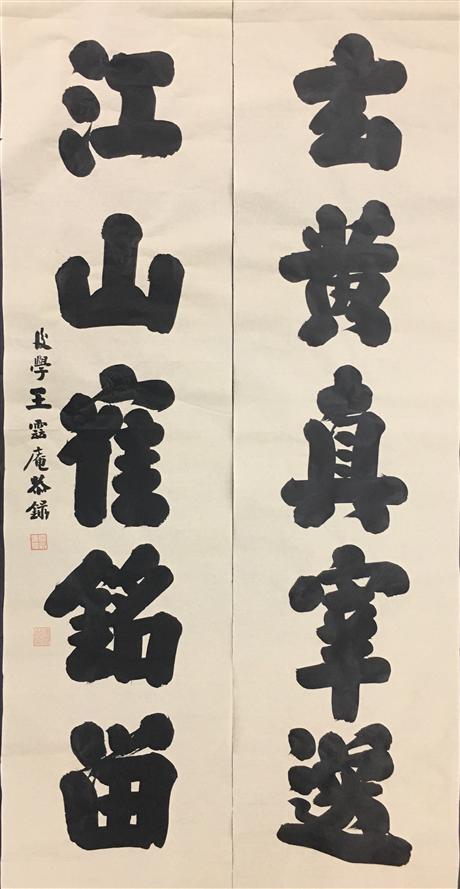 玄黃真宰邃
江山隺銘留
後學王雲庵恭錄